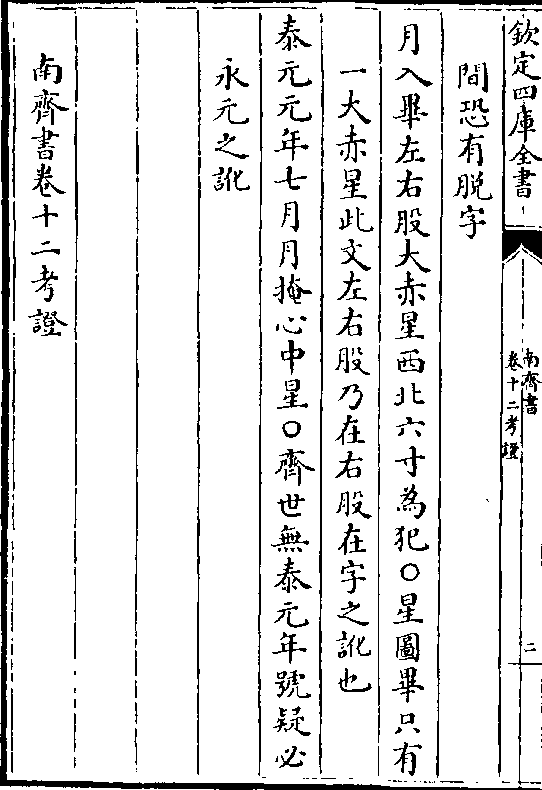 欽定四庫全書
南齊書
卷十二考證
二
間恐有脱字
月入畢左右股大赤星西北六寸為犯○星圖畢只有
一大赤星此文左右股乃在右股在字之訛也
泰元元年七月月掩心中星○齊世無泰元年號疑必
永元之訛
南齊書卷十二考證